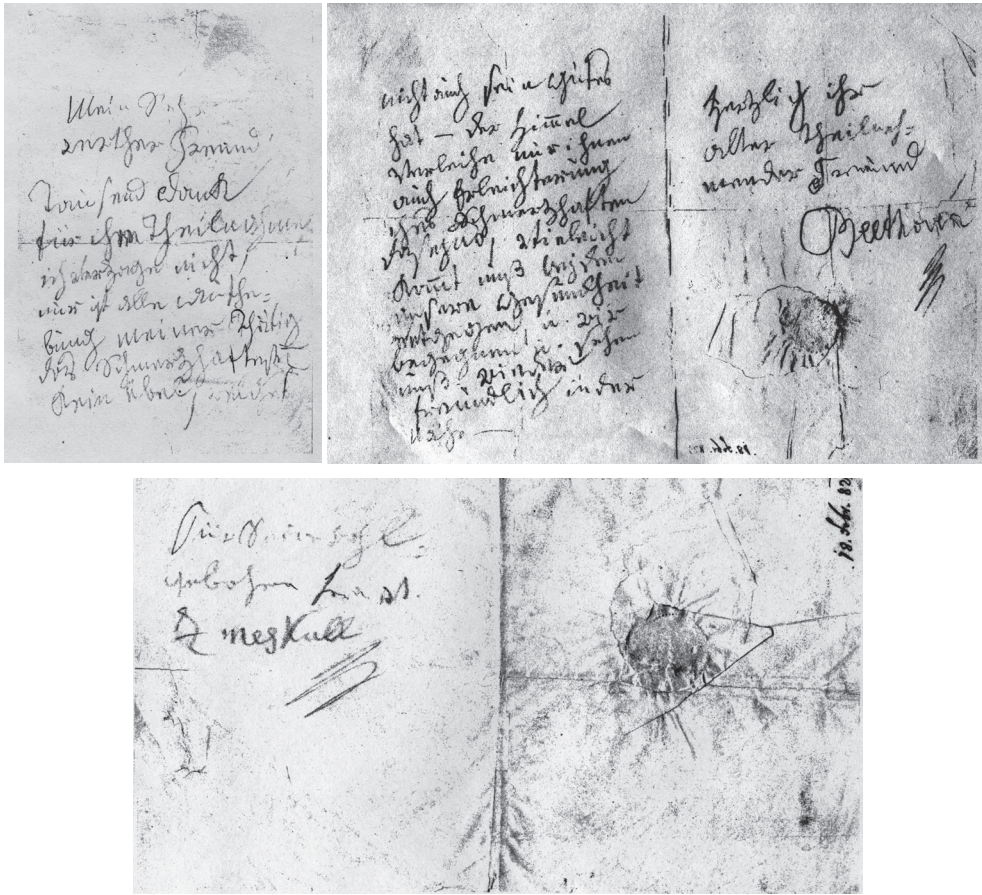 Mein Sehr
werther Freund
Tausend Dank
für ihre Theilnahme
ich verzage nicht,
nur ist alle Aufhe-
bung meiner Thätig
das Schmerzhafteste
Kein übel, welches
nicht auch sein Gutes
hat — der Himmel
verleihe nur ihnen
auch Erleichterung
ihres Schmerzhaften
daseyns, vieleicht
kömt unß beyden
unsere Gesundheit
entgegen, u. wir
begegnen u. sehen
unß wieder
freundlich in der
Nähe —
Herzlich ihr
alter theilneh-
mender Freund
Beethoven
18. Febr. 82
Für Seine Wohl-
gebohrn
Zmeskall
18. Febr. 82